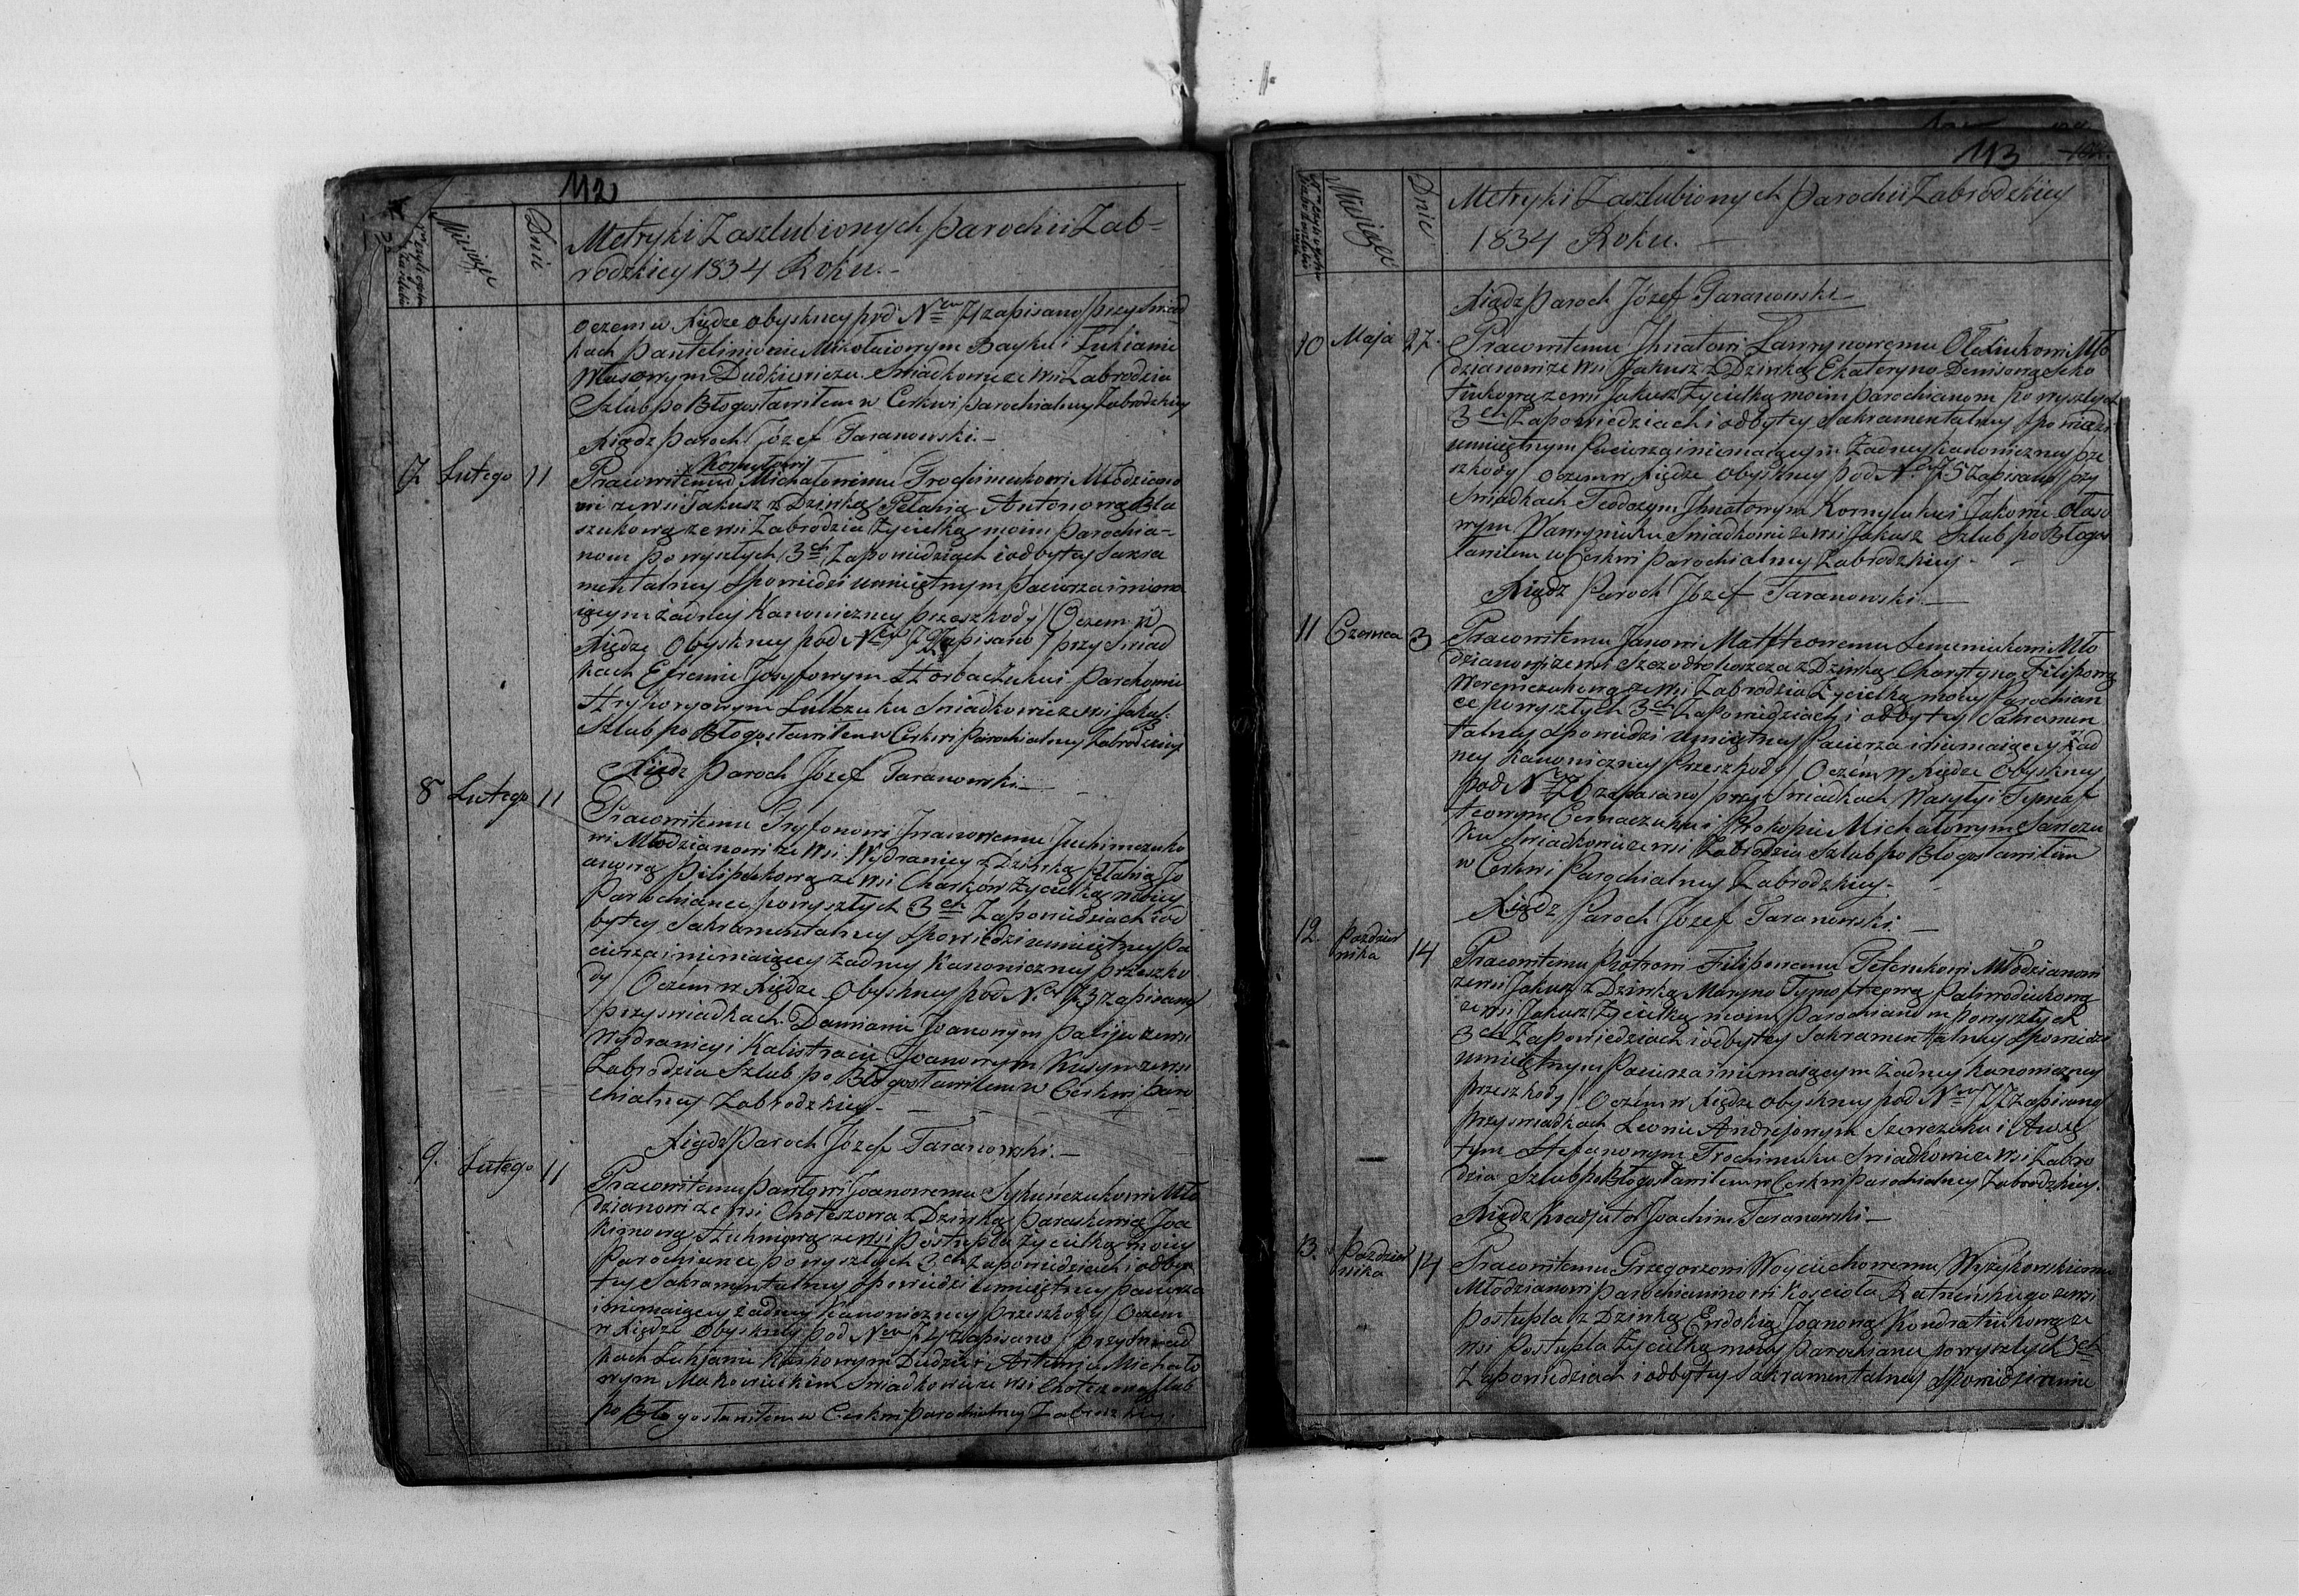 112
Miesiąc
Dnie
Metryki Zaszlubionych Parochii Zab-
rodzkiey 1834 Roku.
oczem w Xiędze obyskney pod Nrem 71 zapisano / przy Swiad
kach Pantelimonie Mikołaiowym Bayku i Łukianie
Własowym Dudkiewiczu Swiadkowie ze wsi Zabrodzia
Szlub po Błogosławiłem w Cerkwi Parochialney Zabrodzkiey
Xiądz Paroch Józef Taranowski.
7 Lutego 11
Pracowitemu Kornyłowi Michałowiemu Trochimukowi Młodziano
wi ze wsi Jakusz z Dziwką Pelahią Antonową Bła
szukową ze wsi Zabrodzia Życielką moim Parochia-
nom po wyszłych 3ch Zapowiedziach i odbytey Sakra
mentalney Spowiedzi umieiętnym Pacierza i niema
iącym żadney Kanoniczney przeszkody / Oczem w
Xiędze Obyskney pod Nrem 72 Zapisano / przy Swiad
kach Efremie Josyfowym Horbaczuku i Parchomie
Hryhorowym Swiadkowie ze wsi Jakusz
Szlub po Błogosławiłem w Cerkwi Parochialney Zabrodzkiey
Xiądz Paroch Józef Taranowski
8 Lutego 11
Pracowitemu Tryfonowi Iwanowemu Juchimczuko
wi Młodzianowi ze Wsi Wydranicy z Dziwką Pelahią Jo
anową Pilipczukową ze wsi Życielką moiey
Parochiance po wyszłych 3ch Zapowiedziach i od
bytey Sakramentalney Spowiedzi umieiętney Pa
cierza i niemaiącey żadney Kanoniczney przeszko
dy / Oczem w Xiędze Obyskney pod Nrem 73 zapisano
/ przy swiadkach Damianie Joanowym Paliju ze wsi
Wydranicy i Kalistracie Joanowym Kusym ze wsi
Zabrodzia Szlub po Błogosławiłem w Cerkwi Paro
chialney Zabrodzkiey
Xiądz Paroch Józef Taranowski.
9. Lutego 11
Pracowitemu Pawłowi Joanowemu Mło
dzianowi ze wsi Choteszowa z Dziwką Paraskewią Joa
kimową ze wsi Postupla Życielką moiey
Parochiance po wyszłych 3ch Zapowiedziach i odby
tey Sakramentalney Spowiedzi umieiętney Pacierza
i niemaiącey żadney Kanoniczney przeszkody / Oczem
w Xiędze Obyskney pod Nrem 74 zapisano / przy Swiad
kach Łukjanie Dudziu i Artemie Michało
wym Makowieckim Swiadkowie ze wsi Choteszowa Szlub
po Błogosławiłem w Cerkwi Parochialney Zabrodzkiey.
113
Miesiąc
Dnie
Metryki Zaszlubionych Parochii Zabrodzkiey
1834 Roku.
Xiądz Paroch Józef Taranowski
10 Maja 27.
Pracowitemu Ihnatowi Ławrynowemu Olexiukowi Mło
dzianowi ze wsi Jakusz z Dziwką Ekateryną Denisową
ze wsi Jakusz Życielką moim Parochianom po wyszłych
3ch Zapowiedziach i odbytey Sakramentalney Spowiedzi
umieiętnym Pacierza i niemaiącym Żadney Kanoniczney prze
szkody / oczem w Xiędze obyskney pod Nrem 75 Zapisano / przy
Swiadkach Teodozym Ihnatowym Kornyluku i Jakowie
Wawryniuku Swiadkowie ze wsi Jakusz Szlub po Błogos
ławiłem w Cerkwi Parochialney Zabrodzkiey
Xiądz Paroch Józef Taranowski.
11 Czerwca 3
Pracowitemu Janowi Mattfeowemu Semeniukowi Mło
dzianowi ze wsi z Dziwką Charytyną Filipową
Weremczukową ze wsi Zabrodzia Życielką moiey Parochian
ce po wyszłych 3ch Zapowiedziach i odbytey Sakramen
talney Spowiedzi umieiętney Pacierza i niemaiącey żad
ney Kanoniczney Przeszkody / Oczem w Xiędze Obyskney
pod Nrem 76 zapisano / przy Swiadkach Wasylyi Tymof
teowym i Prokopie Michałowym Sawczu
ku Swiadkowie ze wsi Zabrodzia Szlub po Błogosławiłem
w Cerkwi Parochialney Zabrodzkiey
Xiądz Paroch Józef Taranowski.
12. Pazdzier
nika 14
Pracowitemu Piotrowi Filipowemu Peterukowi Młodzianowi
ze wsi Jakusz z Dziwką Maryną Tymofteową Paliwodiukową
ze wsi Jakusz Życielką moim Parochianom po wyszłych
3ch Zapowiedziach i odbytey Sakramentalney Spowiedzi
umieiętnym Pacierza i niemaiącym żadney Kanoniczney
przeszkody / Oczem w Xiędze obyskney pod Nrem 77 Zapisano
przy swiadkach Leonie Andrejowym Szewczuku i Awxe
tym Stefanowym Trochimuku Swiadkowie ze wsi Zabro
dzia Szlub po Błogosławiłem w Cerkwi Parochialney Zabrodzkiey.
Xiądz Koadjutor Joachim Taranowski
13. Pazdzier
nika 14
Pracowitemu Grzegorzowi Woyciechowemu Wyżykowskiemu
Młodzianowi Parochianinowi Kościoła Ratnińskiego ze wsi
Postupla z Dziwką Ewdokią Joanową Kondratiukową ze
wsi Postupla Życielką moiey Parochiance po wyszłych 3ch
Zapowiedziach i odbytey Sakramentalney Spowiedzi umie